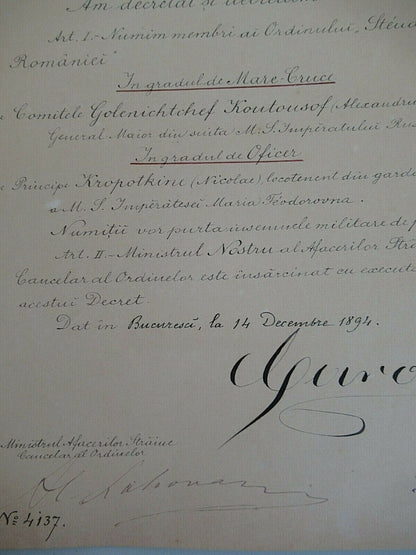 Am decretat și decretăm
Art. I.- Numim membri ai Ordinului „Steua
României”
In gradul de Mare-Cruce
Comitele Golenichtchef Koutousof (Alexandru
General Maior din suita M. S. Impĕratului Rus
In gradul de Oficer
Principe Kropotkine (Nicolae), locotenent din garda
a M. S. Impĕrătesei Maria Teodorovna.
Numiții vor purta insemnele militare de p
Art. II.- Ministrul Nostru al Afacerilor Stră
Cancelar al Ordinelor este însărcinat cu execute
acestui Decret.
Dat în Bucuresci, la 14 Decembre 1894.
Caro
Ministrul Afacerilor Străine
Cancelar al Ordinelor
Lahovari
No 4137.